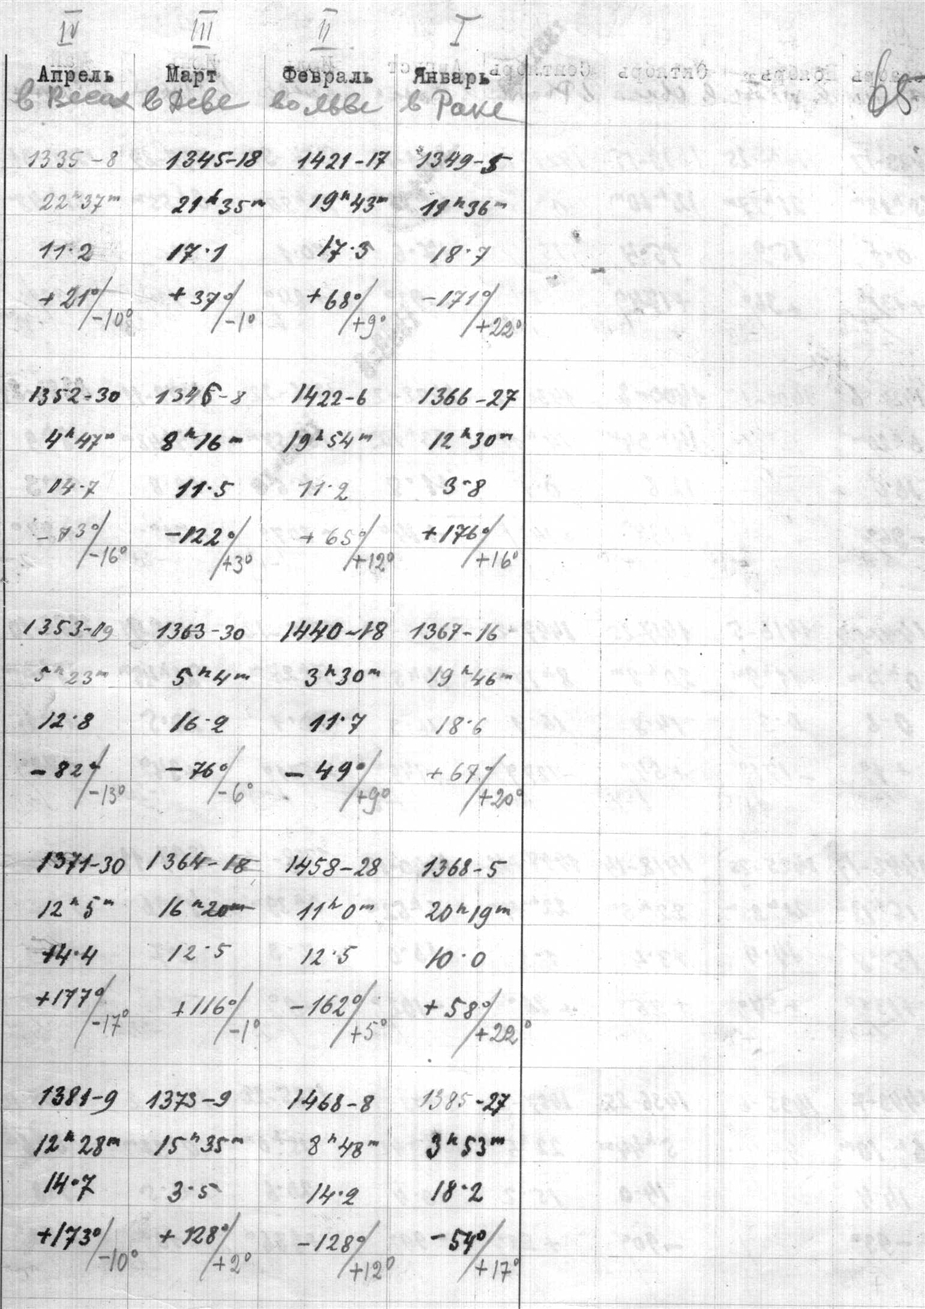 IV III II I
Апрель Март Февраль Январь
в Весах в Деве во Льве в Раке 68
1335-8 1345-18 1421-17 1349-5
22ʰ37ᵐ 21ʰ35ᵐ 19ʰ43ᵐ 19ʰ36ᵐ
11·2 17·1 17·3 18·7
+21°/-10° +37°/-1° +68°/+9° -171°/+22°
1352-30 1346-8 1422-6 1366-27
4ʰ47ᵐ 8ʰ16ᵐ 19ʰ54ᵐ 12ʰ30ᵐ
14·7 11·5 11·2 3·8
-73°/-16° -122°/+3° +65°/+12° +176°/+16°
1353-19 1363-30 1440-18 1367-16
5ʰ23ᵐ 5ʰ4ᵐ 3ʰ30ᵐ 19ʰ46ᵐ
12·8 16·2 11·7 18·6
-82°/-13° -76°/-6° -49°/+9° +67°/+20°
1371-30 1364-18 1458-28 1368-5
12ʰ5ᵐ 16ʰ20ᵐ 11ʰ0ᵐ 20ʰ19ᵐ
14·4 12·5 12·5 10·0
+177°/-17° +116°/-1° -162°/+5° +58°/+22°
1381-9 1373-9 1468-8 1385-27
12ʰ28ᵐ 15ʰ35ᵐ 8ʰ48ᵐ 3ʰ53ᵐ
14·7 3·5 14·2 18·2
+173°/-10° +128°/+2° -128°/+12° -54°/+17°